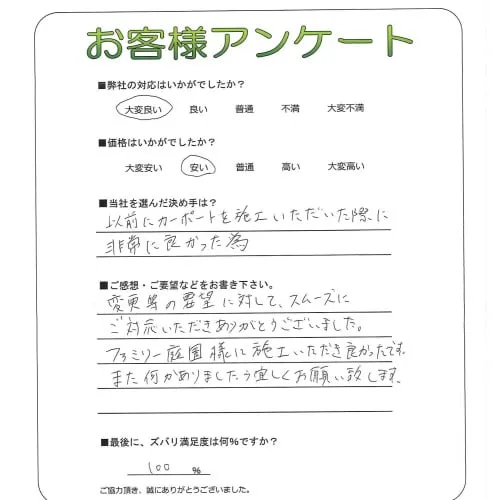 お客様アンケート
■弊社の対応はいかがでしたか？
大変良い 良い 普通 不満 大変不満
■価格はいかがでしたか？
大変安い 安い 普通 高い 大変高い
■当社を選んだ決め手は？
以前にカーポートを施工いただいた際に
非常に良かった為
■ご感想・ご要望などをお書き下さい。
変更等の要望に対して、スムーズに
ご対応いただきありがとうございました。
ファミリー庭園様に施工いただき良かったです。
また何かありましたら宜しくお願い致します。
■最後に、ズバリ満足度は何％ですか？
100 ％
ご協力頂き、誠にありがとうございました。